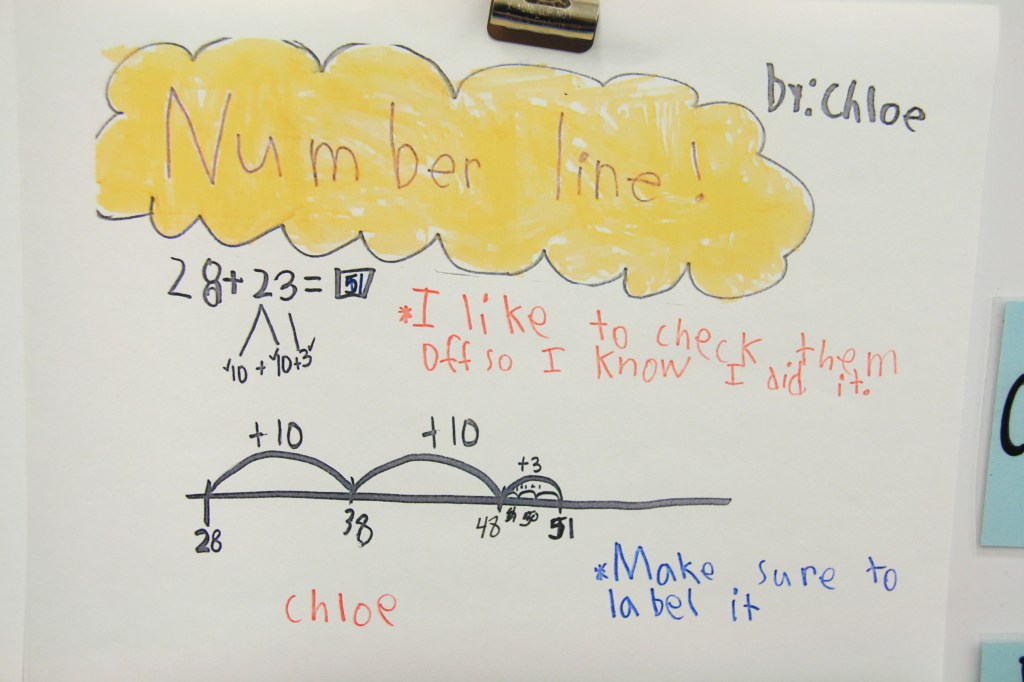 by: Chloe
Number line!
28+23=51
10+10+3
*I like to check them
off so I know I did it.
+10 +10 +3
28 38 48 50 51
*Make sure to
label it
chloe